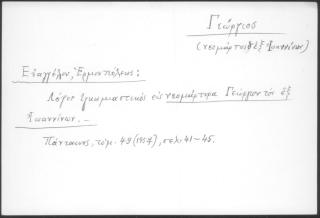 Γεώργιος
(νεομάρτυς ἐξ Ἰωαννίνων)
Εὐαγγέλου, Ἑρμουπόλεως:
Λόγος ἐγκωμιαστικὸς εἰς νεομάρτυρα Γεώργιον τὸν ἐξ
Ἰωαννίνων. –
Πάνταινος, τόμ. 49 (1957), σελ. 41-45.